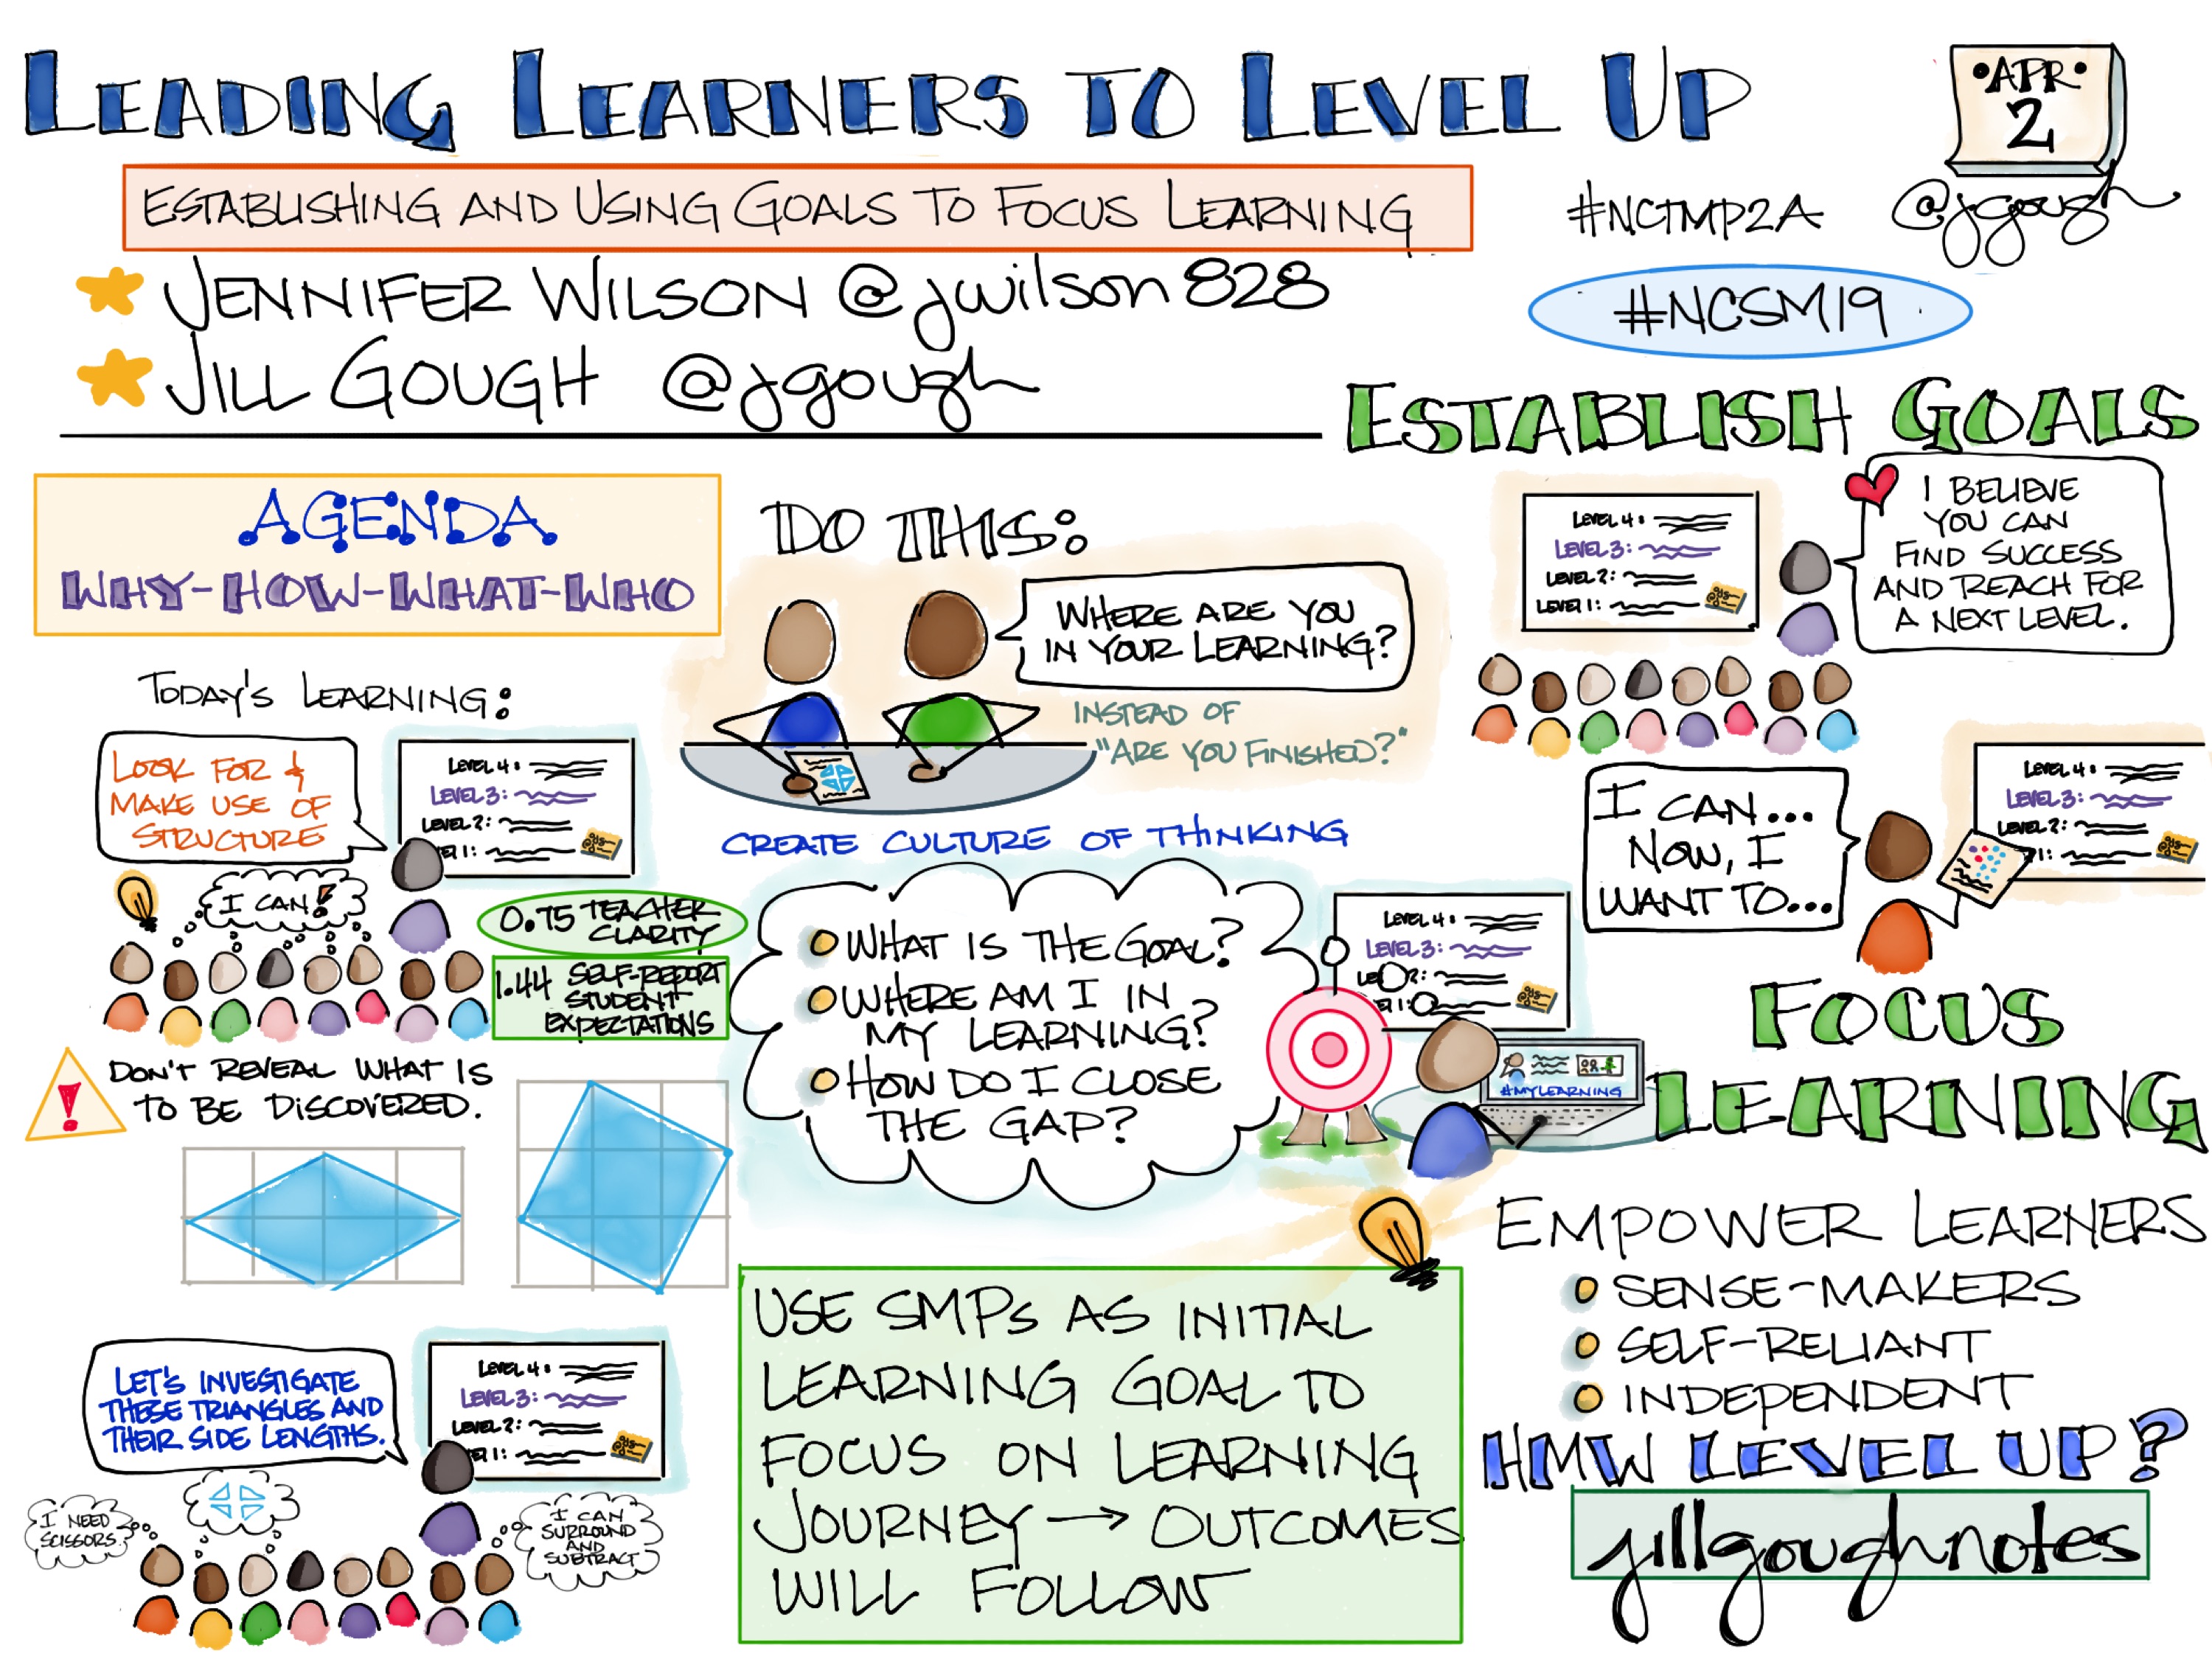 LEADING LEARNERS TO LEVEL UP
•APR•
2
ESTABLISHING AND USING GOALS TO FOCUS LEARNING
#NCTMP2A
@jgough
JENNIFER WILSON @jwilson828
#NCSM19
JILL GOUGH @jgough
ESTABLISH GOALS
AGENDA
WHY-HOW-WHAT-WHO
DO THIS:
WHERE ARE YOU
IN YOUR LEARNING?
INSTEAD OF
"ARE YOU FINISHED?"
LEVEL 4:
LEVEL 3:
LEVEL 2:
LEVEL 1:
I BELIEVE
YOU CAN
FIND SUCCESS
AND REACH FOR
A NEXT LEVEL.
TODAY'S LEARNING:
LOOK FOR &
MAKE USE OF
STRUCTURE
LEVEL 4:
LEVEL 3:
LEVEL 2:
EL 1:
I CAN!
0.75 TEACHER
CLARITY
1.44 SELF-REPORT
STUDENT
EXPECTATIONS
CREATE CULTURE OF THINKING
WHAT IS THE GOAL?
WHERE AM I IN
MY LEARNING?
HOW DO I CLOSE
THE GAP?
LEVEL 4:
LEVEL 3:
LE 2:
EL 1:
#MYLEARNING
I CAN...
NOW, I
WANT TO...
LEVEL 4:
LEVEL 3:
LEVEL 2:
1:
FOCUS
LEARNING
! DON'T REVEAL WHAT IS
TO BE DISCOVERED.
EMPOWER LEARNERS
SENSE-MAKERS
SELF-RELIANT
INDEPENDENT
HMW LEVEL UP?
jillgoughnotes
USE SMPS AS INITIAL
LEARNING GOAL TO
FOCUS ON LEARNING
JOURNEY → OUTCOMES
WILL FOLLOW
LET'S INVESTIGATE
THESE TRIANGLES AND
THEIR SIDE LENGTHS.
LEVEL 4:
LEVEL 3:
LEVEL 2:
EL 1:
I NEED
SCISSORS.
I CAN
SURROUND
AND
SUBTRACT